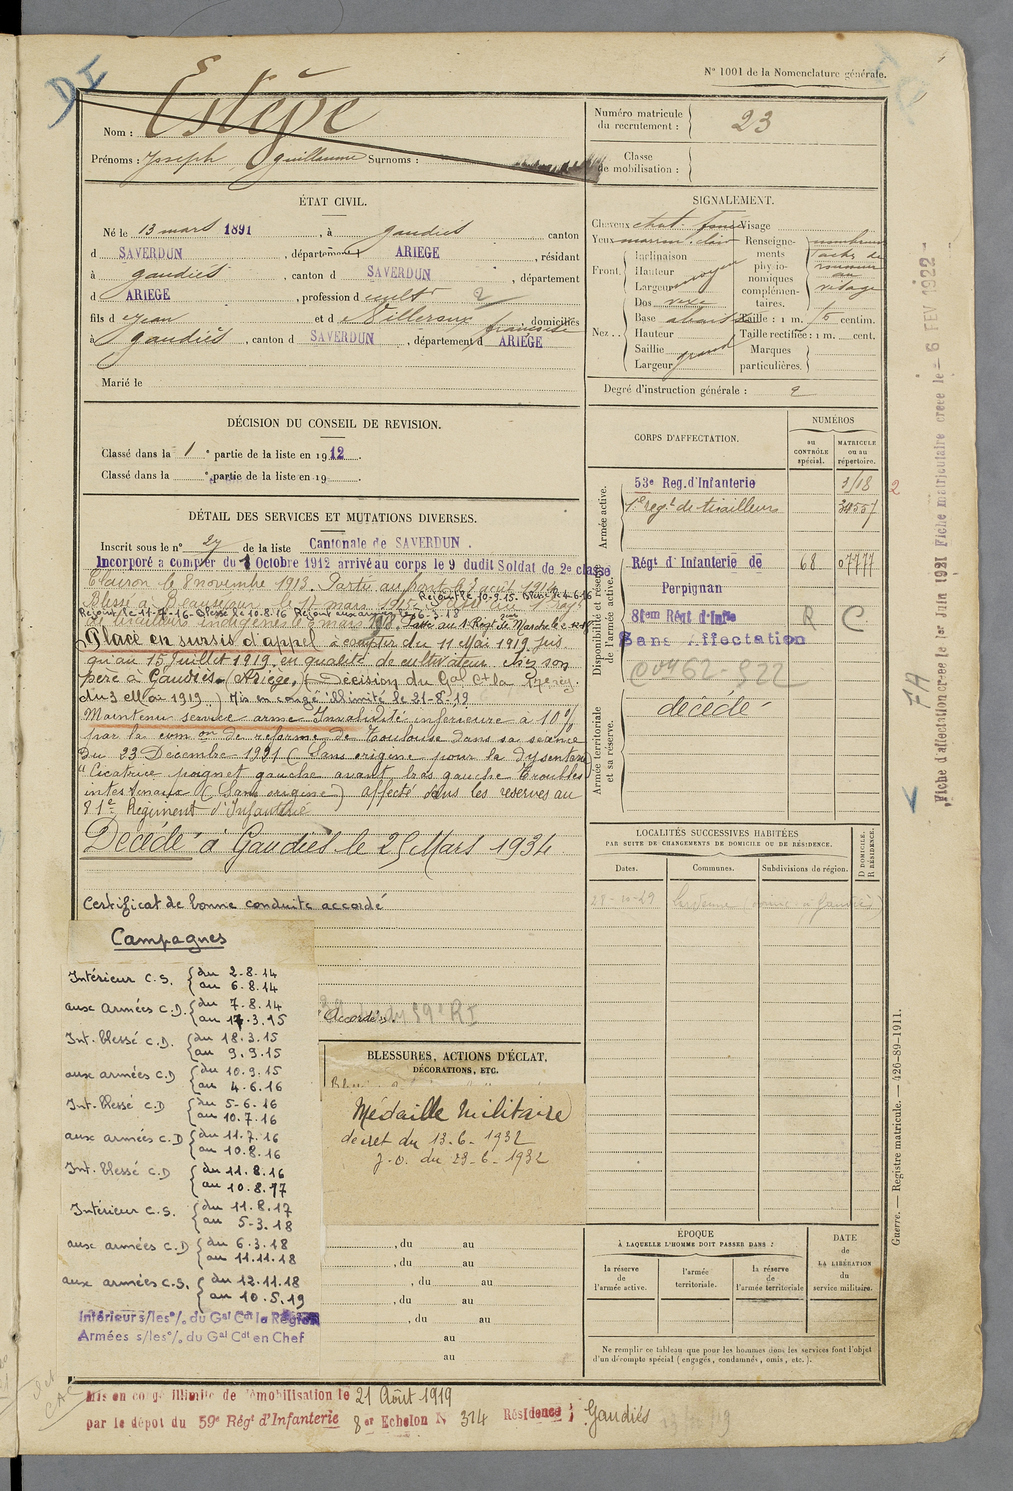 N° 1001 de la Nomenclature générale.
D I
Nom : Estève
Prénoms : Joseph Guillaume Surnoms :
Numéro matricule du recrutement : 23
Classe de mobilisation :
ÉTAT CIVIL.
Né le 13 mars 1891, à Gaudiès canton
d SAVERDUN, département d ARIEGE, résidant
à Gaudiès, canton d SAVERDUN, département
d ARIEGE, profession d cultr 2
fils d e Jean et d e Villeroux françoise domiciliés
à Gaudiès, canton d SAVERDUN, département d ARIEGE
Marié le
SIGNALEMENT.
Cheveux chat. foncé Visage
Yeux marron clair Renseigne-
Front. Inclinaison ments
Hauteur physio-
Largeur moyen nomiques
Dos vexe complémen-
taires.
nombreuses taches de rousseur au visage
Nez . . Base Taille : 1 m. centim.
Hauteur Taille rectifiée : 1 m. cent.
Saillie Marques
Largeur grand particulières.
Degré d'instruction générale : 2
DÉCISION DU CONSEIL DE REVISION.
Classé dans la 1e partie de la liste en 1912.
Classé dans la e partie de la liste en 19 .
DÉTAIL DES SERVICES ET MUTATIONS DIVERSES.
Inscrit sous le n° 27 de la liste Cantonale de SAVERDUN.
Incorporé a compter du 8 Octobre 1912 arrivé au corps le 9 dudit Soldat de 2e classe
Clairon le 8 novembre 1913. Parti au front le 3 août 1914
Blessé à Beauséjour le 17 mars 1915
Rejoint le 10.9.15. Blessé le 4-6-16
Rejoint le 11-7-16 Blessé le 10.8.16 Rejoint aux armées le 6-3-18
de tirailleurs indigènes le 6 mars 1918. Passé au 1e Regt de Marche le
Placé en sursis d'appel a compter du 11 Mai 1919 jus
qu'au 15 Juillet 1919, en qualité de cultivateur chez son
père à Gaudiès (Ariège) (Décision du Gal Ct la 17e rég.
du 3 Mai 1919) Mis en congé illimité le 21-8-19
Maintenu service armé Invalidité inférieure à 10%
par la com on de réforme de Toulouse dans sa séance
du 23 Décembre 1921 (Sans origine pour la dysenterie)
"Cicatrice poignet gauche avant bras gauche Troubles
intestinaux (Sans origine) affecté dans les réserves au
81e Régiment d'Infanterie
Décédé à Gaudiès le 25 Mars 1934
Certificat de bonne conduite accordé
CORPS D'AFFECTATION.
NUMÉROS
au CONTRÔLE spécial.
MATRICULE ou au répertoire.
Armée active.
53e Reg. d'Infanterie 3/18
1e regt de tirailleurs 34557
2
Disponibilité et réserve de l'armée active.
Régt d'Infanterie de Perpignan 68 07777
81em Régt d'Infie R C
Sans Affectation
Armée territoriale et sa réserve.
décédé
LOCALITÉS SUCCESSIVES HABITÉES
PAR SUITE DE CHANGEMENTS DE DOMICILE OU DE RÉSIDENCE.
Dates.
Communes.
Subdivisions de région.
D DOMICILE. R RÉSIDENCE.
Campagnes
Intérieur C.S. { du 2-8-14
au 6.8.14
aux Armées C.D. { du 7.8.14
au 17.3.15
Int. blessé C.D. { du 18.3.15
au 9.9.15
aux armées C.D { du 10.9.15
au 4.6.16
Int. blessé C.D { du 5-6-16
au 10.7.16
aux armées C.D { du 11.7.16
au 10.8.16
Int. blessé C.D { du 11.8.16
au 10.8.17
Intérieur C.S. { du 11.8.17
au 5-3.18
aux armées C.D { du 6.3.18
au 11.11.18
aux armées C.S. { du 12.11.18
au 10.5.19
Intérieur s/les o/. du Gal Cdt la Région
Armées s/les o/. du Gal Cdt en Chef
Accordé
BLESSURES, ACTIONS D'ÉCLAT,
DÉCORATIONS, ETC.
Médaille militaire
décret du 13.6.1932
J.O. du 23-6-1932
, du au
, du au
, du au
, du au
, du au
au
au
ÉPOQUE
À LAQUELLE L'HOMME DOIT PASSER DANS :
la réserve de l'armée active.
l'armée territoriale.
la réserve de l'armée territoriale
DATE de LA LIBÉRATION du service militaire.
Ne remplir ce tableau que pour les hommes dont les services font l'objet
d'un décompte spécial (engagés, condamnés, omis, etc.).
Mis en congé illimité de démobilisation le 21 Août 1919
par le dépôt du 59e Régt d'Infanterie 8er Echelon N 314 Résidence ; Gaudiès
Fiche d'affectation créée le 1er Juin 1921 Fiche matriculaire créée le 6 FEV 1922
Guerre. — Registre matricule. — 426-89-1911.